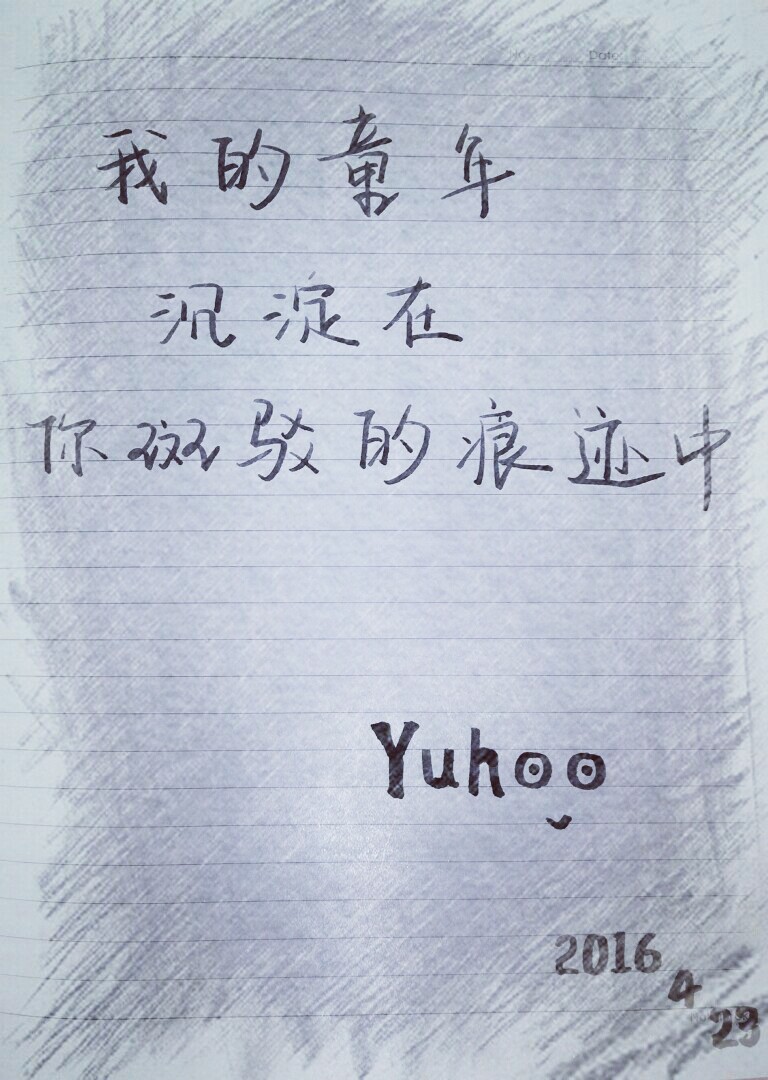 Date
我的童年
沉淀在
你斑驳的痕迹中
Yuhoo
2016
4
23